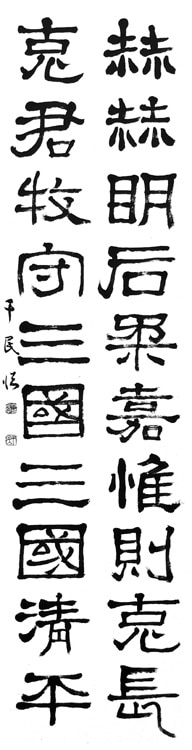 赫赫明后柔嘉惟則克長
克君牧守三國三國清平